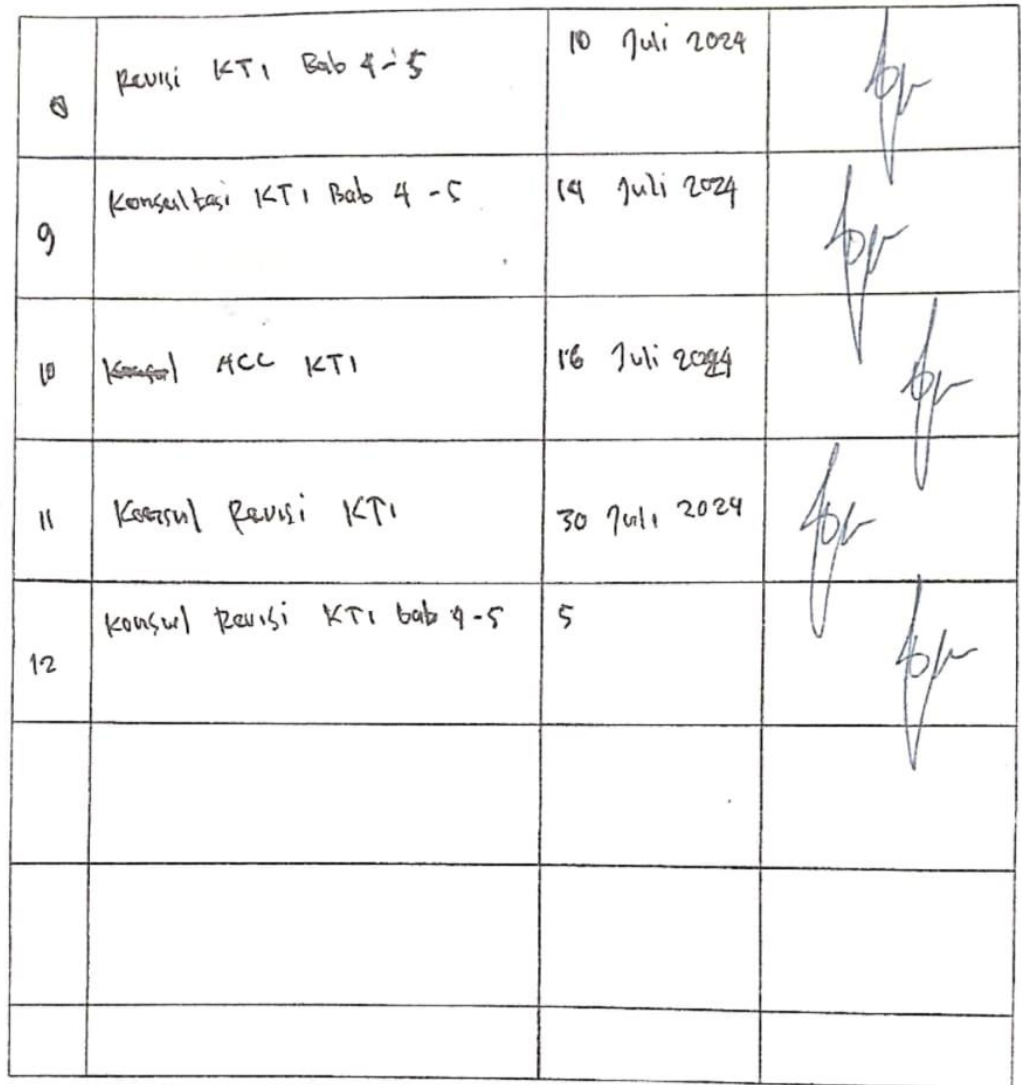 8 Revisi KTI Bab 4-5 10 Juli 2024
9 Konsultasi KTI Bab 4-5 14 Juli 2024
10 Konsul ACC KTI 16 Juli 2024
11 Konsul Revisi KTI 30 Juli 2024
12 Konsul Revisi KTI bab 4-5 5